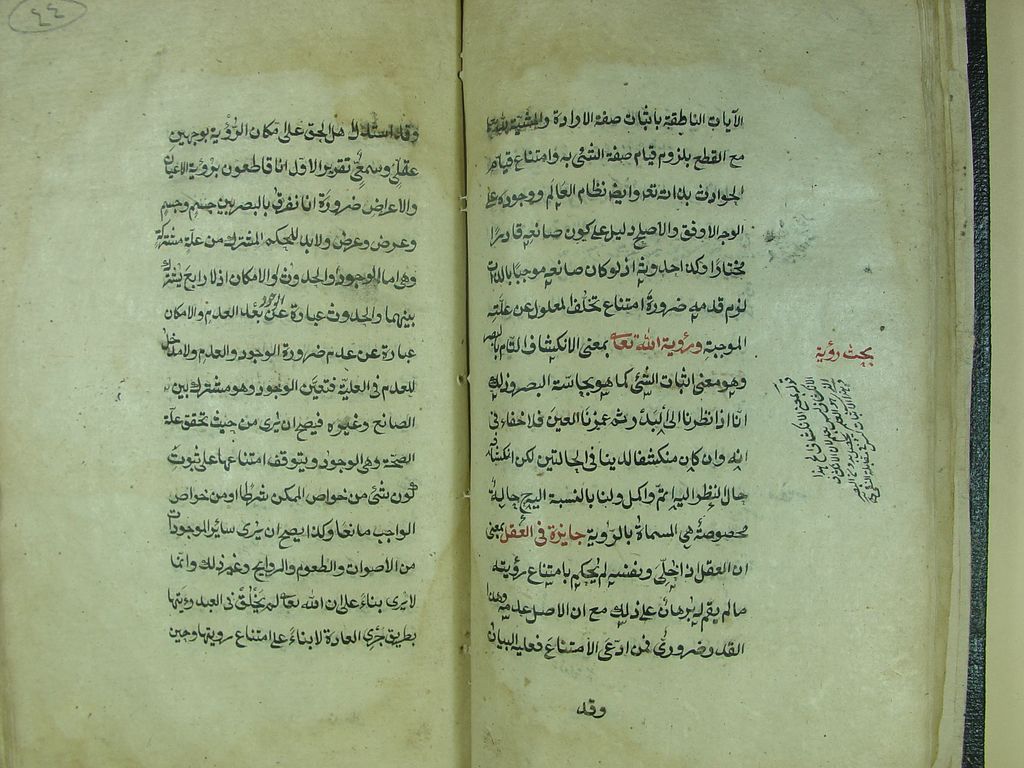 الآيات الناطقة باثبات صفة الارادة والمشية لله تعا
مع القطع بلزوم قيام صفة الشئ به وامتناع قيام
الحوادث بذاته تعا وايضا نظام العالم ووجوده على
الوجه الاوفق والاصلح دليل على كون صانعه قادرًا
مختارًا وكذا حدوثه اذ لو كان صانعه موجبًا بالذات
لزم قدمه ضرورة امتناع تخلف المعلول عن علته
الموجبة ورؤية الله تعا بمعنى الانكشاف التام بالبصر
وهو معنى اثبات الشئ كما هو بحاسة البصر وذلك
انا اذا نظرنا الى البدر ثم غمزنا العين فلا خفاء فى
انه وان كان منكشفا لدينا فى الحالتين لكن انكشافه
حال النظر اليه اتم واكمل ولنا بالنسبة اليه حالة
مخصوصة هى المسماة بالرؤية جايزة فى العقل بمعنى
ان العقل اذا خلى ونفسه لم يحكم بامتناع رؤيته
ما لم يقم له برهان على ذلك مع ان الاصل عدمه وهذا
القدر ضرورى فمن ادعى الامتناع فعليه البيان
وقد
بحث رؤية
٤٤
وقد استدل اهل الحق على امكان الرؤية بوجهين
عقلى وسمعى تقرير الاول انا قاطعون برؤية الاعيان
والاعراض ضرورة انا نفرق بالبصر بين جسم وجسم
وعرض وعرض ولا بد للحكم المشترك من علة مشتركة
وهى اما الوجود او الحدوث او الامكان اذ لا رابع يشترك
بينهما والحدوث عبارة عن الوجود بعد العدم والامكان
عبارة عن عدم ضرورة الوجود والعدم ولا مدخل
للعدم فى العلية فتعين الوجود وهو مشترك بين
الصانع وغيره فيصح ان يرى من حيث تحقق علة
الصحة وهى الوجود ويتوقف امتناعها على ثبوت
كون شئ من خواص الممكن شرطا او من خواص
الواجب مانعا وكذا يصح ان يرى سائر الموجودات
من الاصوات والطعوم والروايح وغير ذلك وانما
لا يرى بناء على ان الله تعا لم يخلق فى العبد رؤيتها
بطريق جرى العادة لا بناء على امتناع رويتها وحين